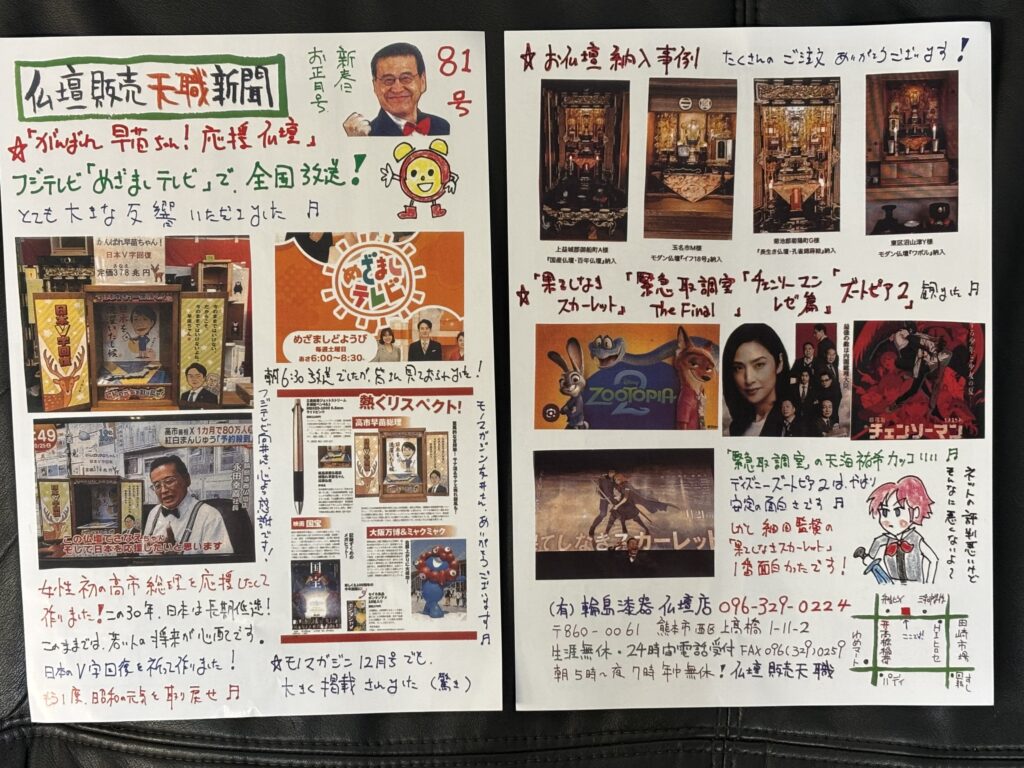 仏壇販売天職新聞
新春仁
お正月号
81号
☆「がんばれ早苗ちゃん!応援仏壇」
フジテレビ「めざましテレビ」で、全国放送!
とても大きな反響いただきました♬
がんばれ早苗ちゃん!
日本V字回復
定価378兆円
日本V字回復
めざまし
テレビ
めざましどようび
毎週土曜日
あさ6:00~8:30
朝6:30放送でしたが、皆さん見ておられました!
:49
高市首相X1カ月で80万人
紅白まんじゅう「予約殺到
永田幸喜社長
この仏壇でさなえちゃん
そして日本を応援したいと思います
熱くリスペクト!
高市早苗総理
映画 国宝
大阪万博&ミャクミャク
モノマガジン
ありがとうございます♬
女性初の高市総理を応援したくて
作りました!この30年、日本は長期低迷!
このままでは、若い人の将来が心配です。
日本のV字回復を祈って作りました!
もう1度、昭和の元気を取り戻せ♬
☆モノマガジン12月号でも、
大きく掲載されました(驚き)
☆お仏壇納入事例 たくさんのご注文ありがとうございます!
上益城郡御船町A様
『国産仏壇・百年仏壇』納入
玉名市M様
モダン仏壇『イフ18号』納入
菊池郡菊陽町G様
『長生き仏壇・孔雀錦蒔絵』納入
東区沼山津Y様
モダン仏壇『ワポル』納入
☆「果てしなきスカーレット」「緊急取調室 The Final」「チェンソーマンレゼ篇」ズートピア2 観ました♬
Disney
ZOOTOPIA
2
最後の敵は内閣総理大臣
チェンソーマン
てしなきスカーレット
「緊急取調室」の天海祐希カッコいい♬
ディズニーズートピア2は、やはり
安定の面白さです♬
しかし細田監督の
「果てしなきスカーレット」
1番面白かたです!
ネットの評判悪いけど
そんなに悪くないよ~
(有)輪島漆器仏壇店 096-329-0224
〒860-0061 熊本市西区上高橋1-11-2
生涯無休・24時間電話受付 FAX096(329)0259
朝5時~夜7時 年中無休!仏壇販売天職
ここだよ
田崎市場
ゆめマート
回転すし